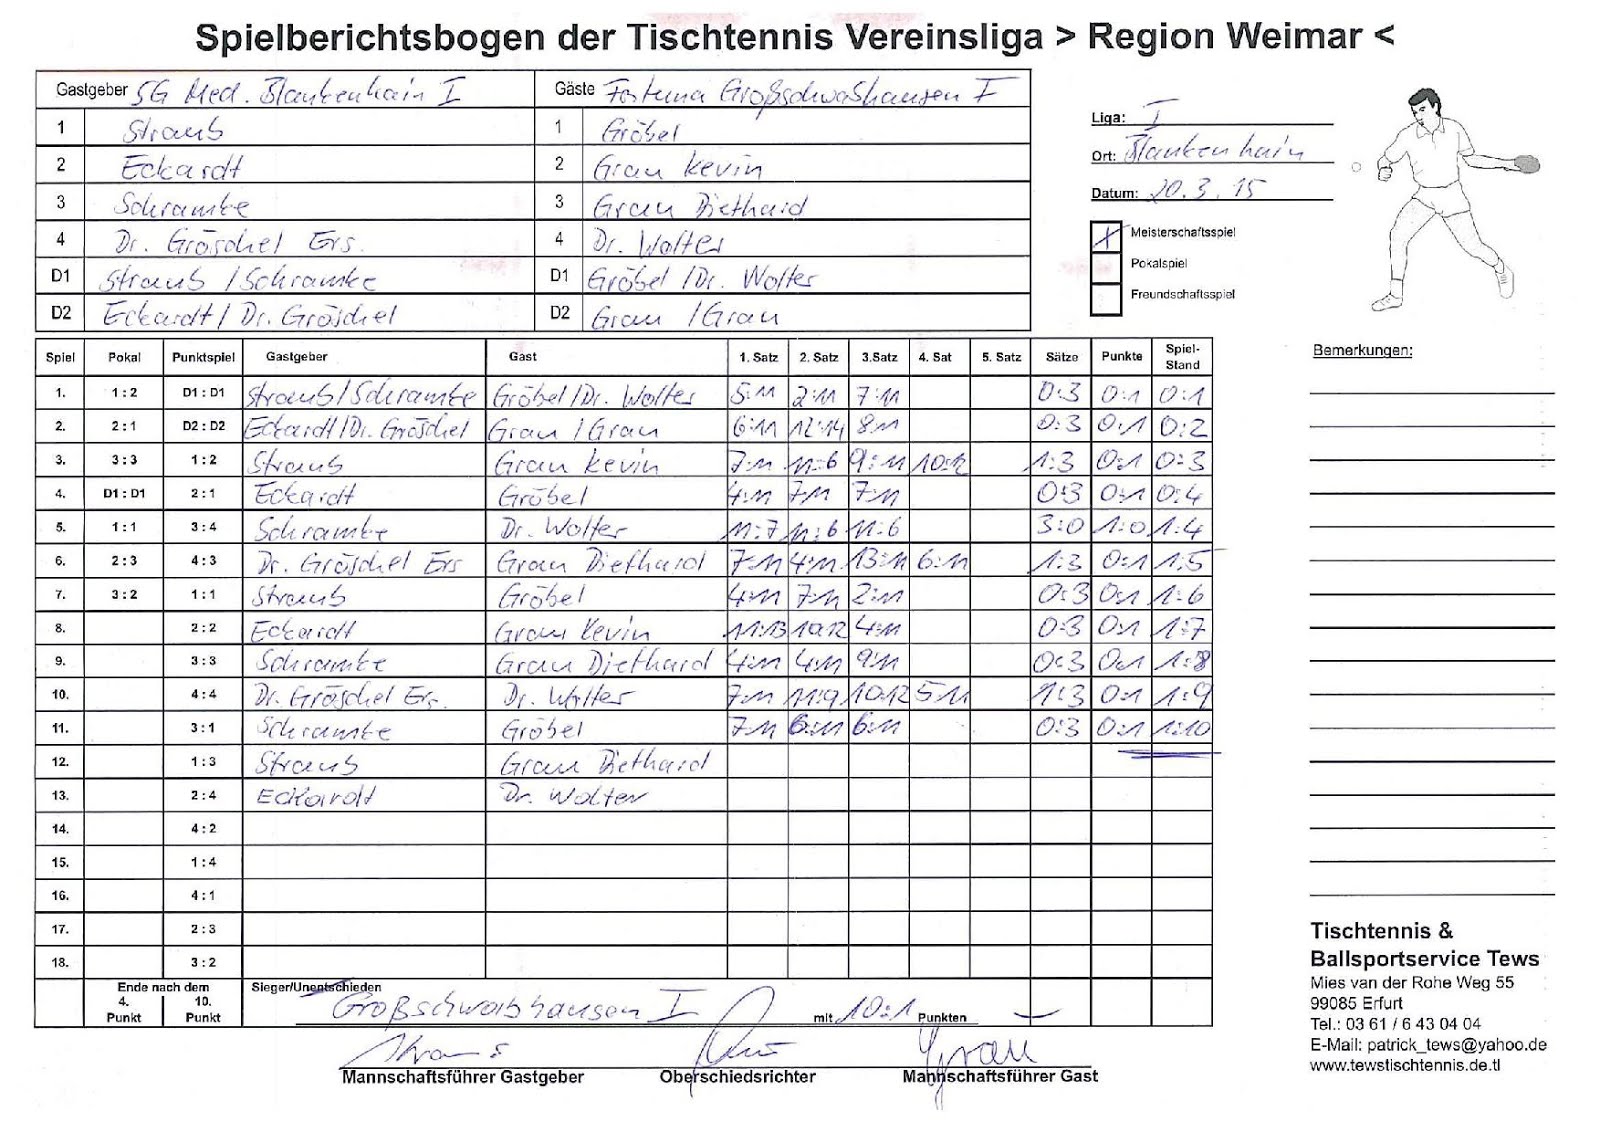 Spielberichtsbogen der Tischtennis Vereinsliga > Region Weimar <
Gastgeber SG Med. Blankenhain I Gäste Fortuna Großschwabhausen I
1 Straub 1 Gröbel
2 Eckardt 2 Grau Kevin
3 Schramke 3 Grau Diethard
4 Dr. Gröschel Ers. 4 Dr. Wolter
D1 Straub / Schramke D1 Gröbel / Dr. Wolter
D2 Eckardt / Dr. Gröschel D2 Grau / Grau
Liga: I
Ort: Blankenhain
Datum: 20.3.15
X Meisterschaftsspiel
Pokalspiel
Freundschaftsspiel
Bemerkungen:
Spiel Pokal Punktspiel Gastgeber Gast 1. Satz 2. Satz 3.Satz 4. Sat 5. Satz Sätze Punkte Spiel-Stand
1. 1 : 2 D1 : D1 Straub/Schramke Gröbel/Dr. Wolter 5:11 2:11 7:11 0:3 0:1 0:1
2. 2 : 1 D2 : D2 Eckardt/Dr. Gröschel Grau / Grau 6:11 12:14 8:11 0:3 0:1 0:2
3. 3 : 3 1 : 2 Straub Grau Kevin 7:11 11:6 9:11 10:12 1:3 0:1 0:3
4. D1 : D1 2 : 1 Eckardt Gröbel 4:11 7:11 7:11 0:3 0:1 0:4
5. 1 : 1 3 : 4 Schramke Dr. Wolter 11:7 11:6 11:6 3:0 1:0 1:4
6. 2 : 3 4 : 3 Dr. Gröschel Ers Grau Diethard 7:11 4:11 13:11 6:11 1:3 0:1 1:5
7. 3 : 2 1 : 1 Straub Gröbel 4:11 7:11 2:11 0:3 0:1 1:6
8. 2 : 2 Eckardt Grau Kevin 11:13 10:12 4:11 0:3 0:1 1:7
9. 3 : 3 Schramke Grau Diethard 4:11 4:11 9:11 0:3 0:1 1:8
10. 4 : 4 Dr. Gröschel Ers. Dr. Wolter 7:11 11:9 10:12 5:11 1:3 0:1 1:9
11. 3 : 1 Schramke Gröbel 7:11 6:11 6:11 0:3 0:1 1:10
12. 1 : 3 Straub Grau Diethard
13. 2 : 4 Eckardt Dr. Wolter
14. 4 : 2
15. 1 : 4
16. 4 : 1
17. 2 : 3
18. 3 : 2
Ende nach dem
4. Punkt 10. Punkt
Sieger/Unentschieden
Großschwabhausen I mit 10:1 Punkten
Straub Grau
Mannschaftsführer Gastgeber Oberschiedsrichter Mannschaftsführer Gast
Tischtennis &
Ballsportservice Tews
Mies van der Rohe Weg 55
99085 Erfurt
Tel.: 03 61 / 6 43 04 04
E-Mail: patrick_tews@yahoo.de
www.tewstischtennis.de.tl